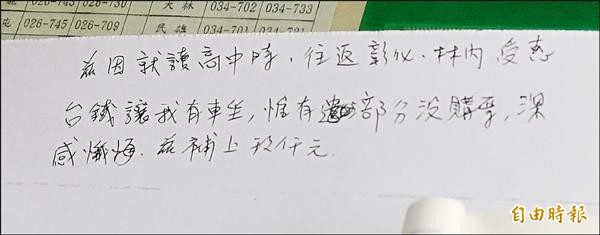 屯 026-745 026-709
大林 034-702 034-733
民雄 034-701 034-731
茲因就讀高中時,往返彰化.林內受惠
台鐵讓我有車坐,惟有部分沒購票,深
感懺悔.茲補上 仟元.
自由時報